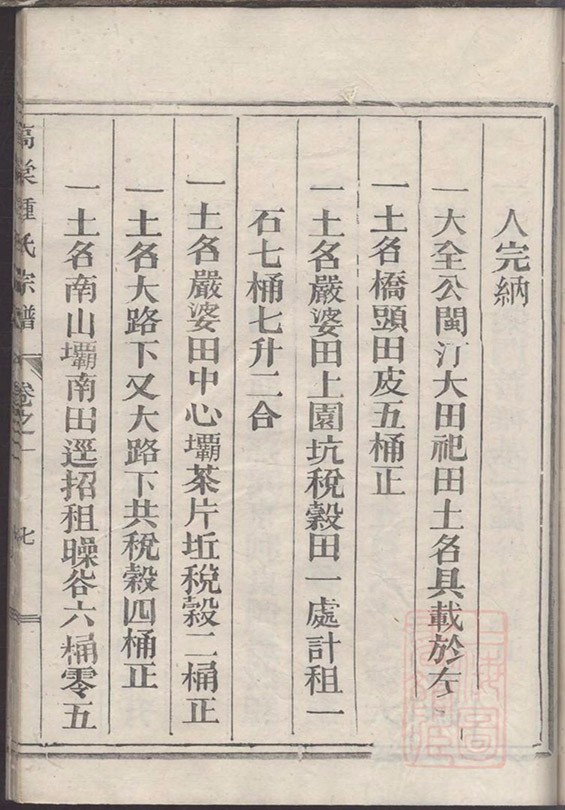 人完納
一大全公閩汀大田祀田土名具載於左
一土名橋頭田皮五桶正
一土名嚴婆田上園坑稅穀田一處計租一
石七桶七升二合
一土名嚴婆田中心壩茶片坵稅穀二桶正
一土名大路下又大路下共稅穀四桶正
一土名南山壩南田逕招租㬠谷六桶零五
高梁鍾氏宗譜 卷之一 七